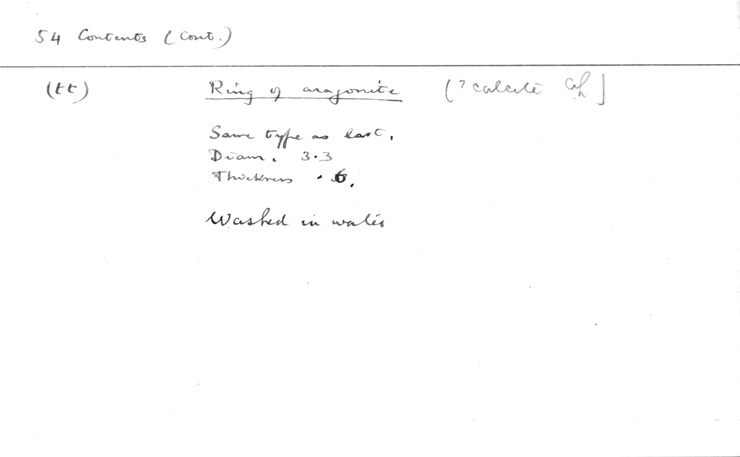 54 Contents (Cont.)
(tt) Ring of aragonite (? calcite ]
Same type as last.
Diam. 3.3
Thickness .6.
Washed in water